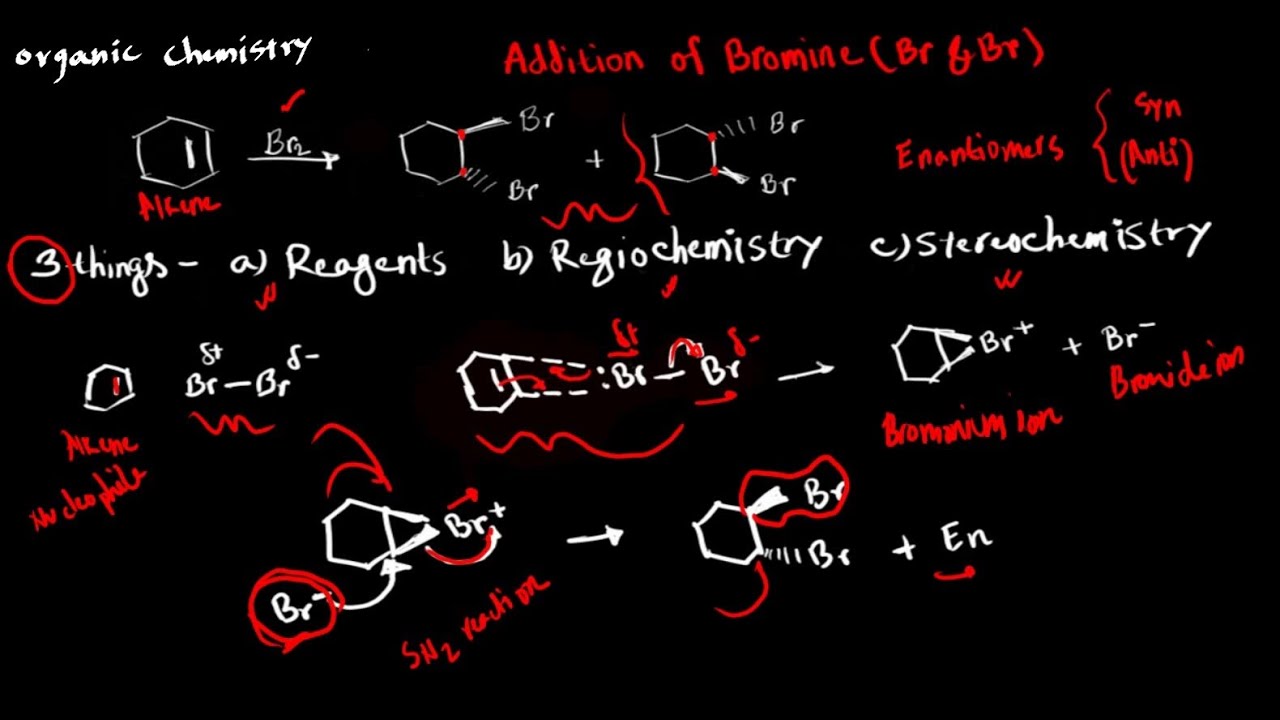 organic chemistry
Addition of Bromine (Br & Br)
Alkene
Br2
Br
Br
+
Br
Br
Enantiomers { Syn
(Anti)
3 things - a) Reagents b) Regiochemistry c) Stereochemistry
Alkene
Nucleophile
δ+ δ-
Br — Br
δ+ δ-
:Br — Br
Br+ + Br-
Brominium ion
Bromide ion
Br+
Br-
SN2 reaction
Br
Br + En